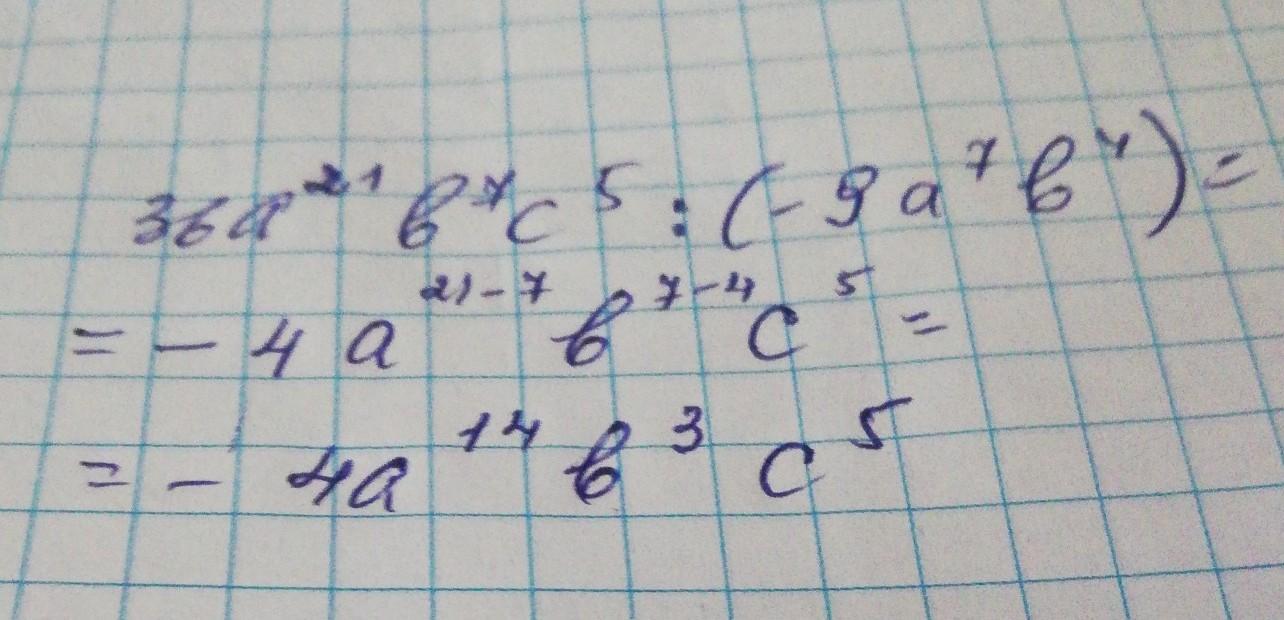 36a²¹в⁷c⁵ : (-9a⁷в⁴) =
= - 4a²¹⁻⁷в⁷⁻⁴c⁵ =
= - 4a¹⁴в³c⁵